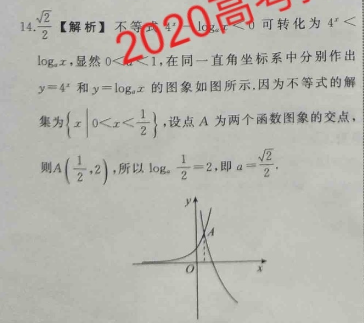 14. √2/2 【解析】不等式 4ˣ-logₐx<0 可转化为 4ˣ<
logₐx,显然 0<a<1,在同一直角坐标系中分别作出
y=4ˣ 和 y=logₐx 的图象如图所示.因为不等式的解
集为{x|0<x<1/2},设点 A 为两个函数图象的交点,
则A(1/2,2),所以 logₐ 1/2=2,即 a=√2/2.
2020高考
y
A
O
x